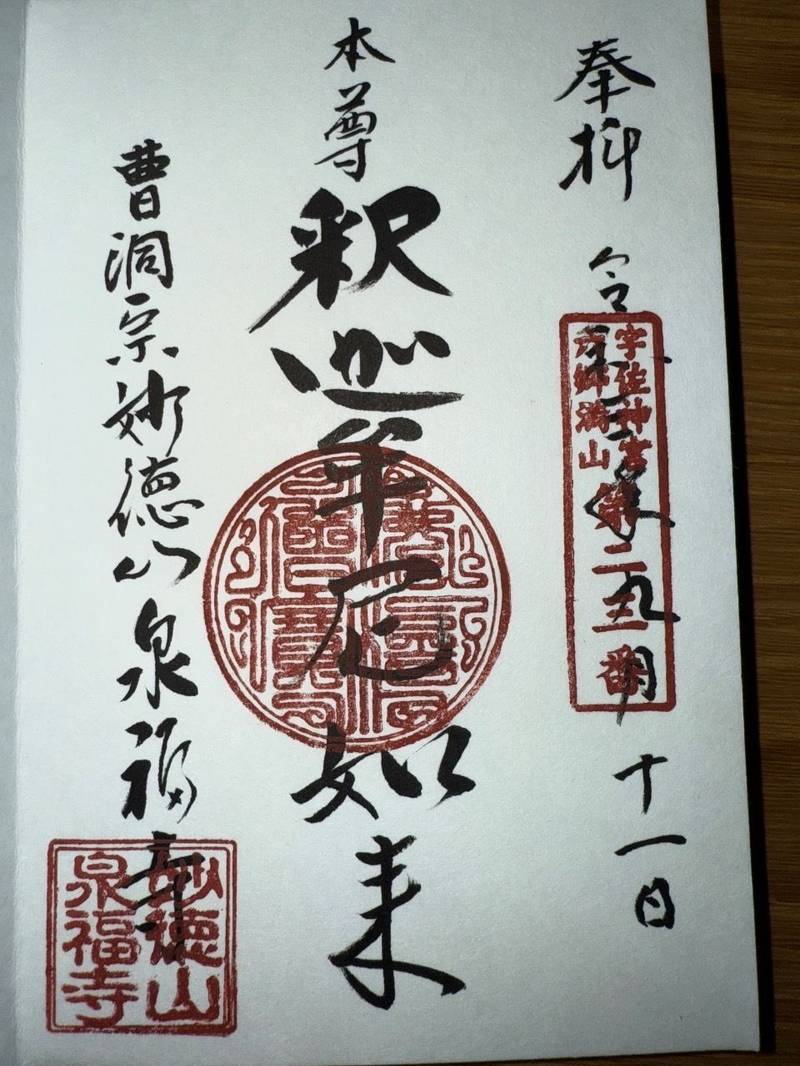 奉拝 令和三年九月十一日
宇佐神宮
六郷満山
本尊
釈迦牟尼如来
曹洞宗妙徳山泉福寺
妙徳山
泉福寺